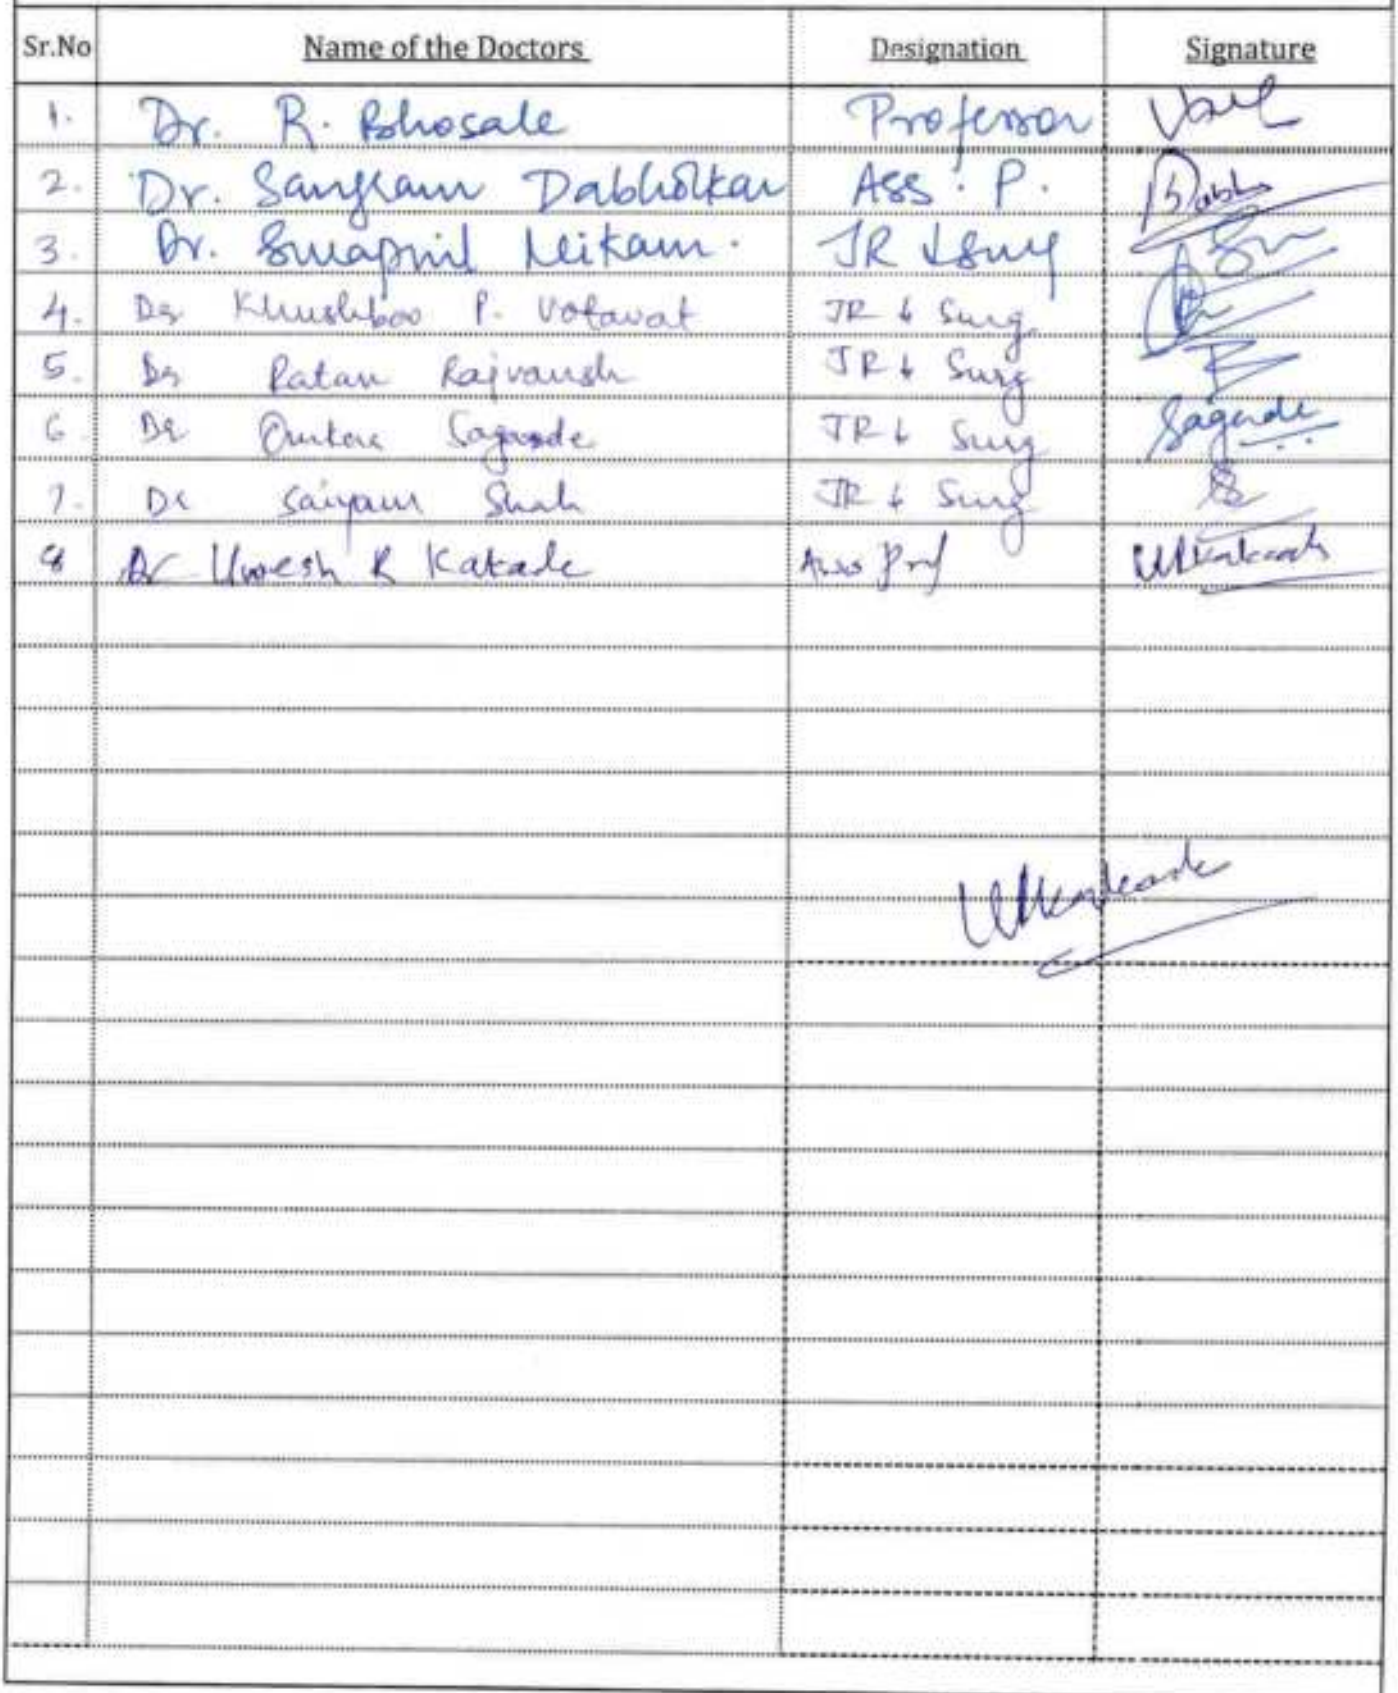 Sr.No Name of the Doctors Designation Signature
1. Dr. R. Bhosale Professor
2. Dr. Sangram Dabholkar Ass. P. Dabh
3. Dr. Swapnil Nikam. JR ↓ Surg
4. Dr Khushboo P. Votavat JR ↓ Surg
5. Dr Ratan Rajvansh JR ↓ Surg
6 Dr Omkar Sagade JR ↓ Surg Sagade
7. Dr Saiyam Shah JR ↓ Surg
8 Dr Umesh R Kakade Asso Prof URKakade
URKakade